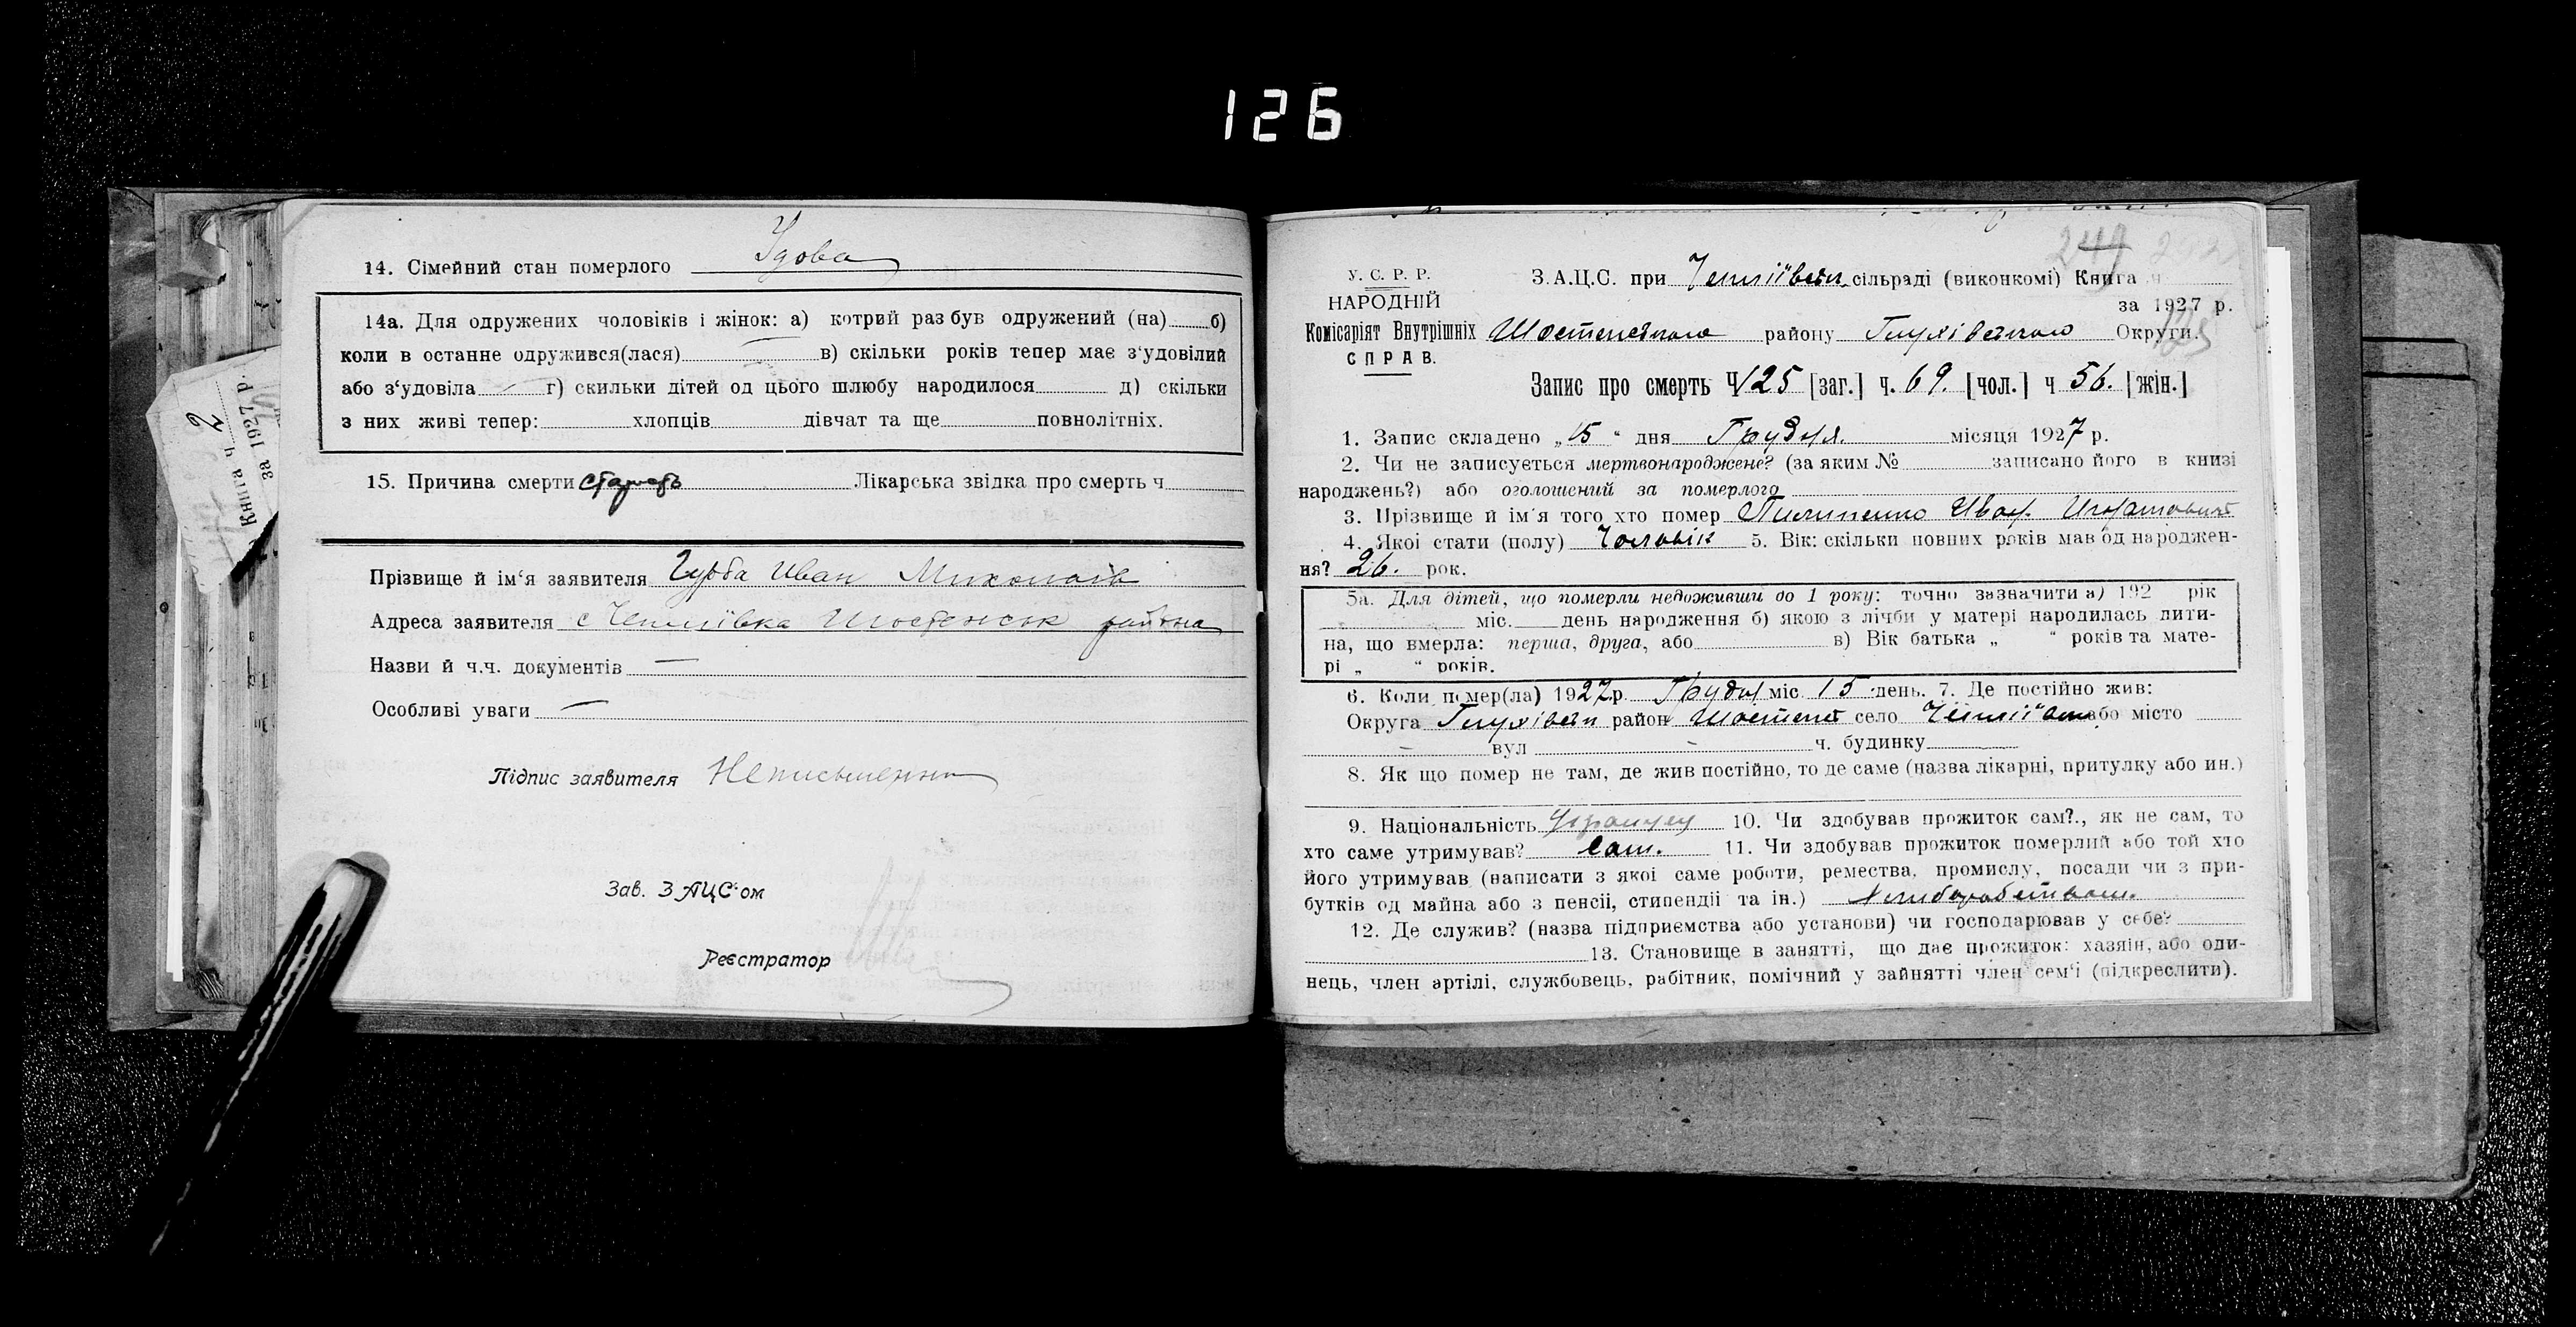 126
14. Сімейний стан померлого Удова
14а. Для одружених чоловіків і жінок: а) котрий раз був одружений (на) б)
коли в останне одружився(лася) в) скільки років тепер має з'удовілий
або з'удовіла г) скильки дітей од цього шлюбу народилося д) скільки
з них живі тепер: хлопців дівчат та ще повнолітніх.
15. Причина смерти старость Лікарська звідка про смерть ч
Прізвище й ім'я заявителя Иван
Адреса заявителя с района
Назви й ч.ч. документів —
Особливі уваги —
Підпис заявителя
Зав. ЗАЦС'ом
Реєстратор
Книга ч 2
за 1927 р.
249
У. С. Р. Р.
НАРОДНІЙ
Комісаріят Внутрішніх
СПРАВ.
З.А.Ц.С. при сільраді (виконкомі) Книга ч
за 1927 р.
району Округи.
Запис про смерть Ч 125 [заг.] ч. 69. [чол.] ч 56. [жін.]
1. Запис складено „15“ дня Грудня місяця 1927 р.
2. Чи не записується мертвонароджене? (за яким № записано його в книзі
народжень?) або оголошений за померлого
3. Прізвище й ім'я того хто помер Пилипенко Иван Игнатович
4. Якої стати (полу) Чоловік 5. Вік: скільки повних років мав од народжен-
ня? 26. рок.
5а. Для дітей, що померли недоживши до 1 року: точно зазначити а) 192 рік
міс. день народження б) якою з лічби у матері народилась дити-
на, що вмерла: перша, друга, або в) Вік батька „ “ років та мате-
рі „ “ років.
6. Коли помер(ла) 1927 р. Грудня міс. 15 день. 7. Де постійно жив:
Округа район село або місто
вул ч. будинку
8. Як що помер не там, де жив постійно, то де саме (назва лікарні, притулку або ин.)
9. Національність 10. Чи здобував прожиток сам?., як не сам, то
хто саме утримував? Сам. 11. Чи здобував прожиток померлий або той хто
його утримував (написати з якої саме роботи, ремества, промислу, посади чи з при-
бутків од майна або з пенсії, стипендії та ін.) Хліборобством.
12. Де служив? (назва підприємства або установи) чи господарював у себе?
13. Становище в занятті, що дає прожиток: хазяїн, або оди-
нець, член артілі, службовець, рабітник, помічний у зайнятті член сем'ї (підкреслити).